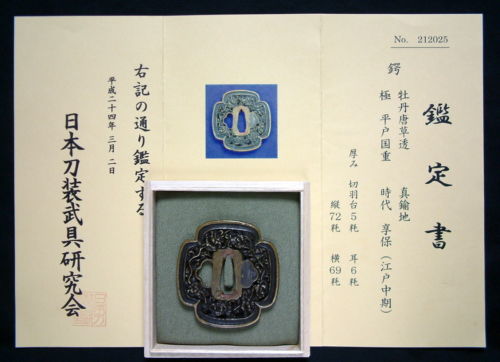 No. 212025
鑑定書
鍔
牡丹唐草透 真鍮地
極 平戸国重 時代 享保(江戸中期)
厚み 切羽台5粍 耳6粍
縦72粍 横69粍
右記の通り鑑定する
平成二十四年 三月 二日
日本刀装武具研究会